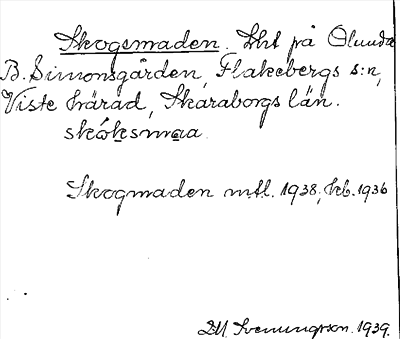 Skogsmaden. Lht på Ölunda
B. Simonsgården, Flakebergs s:n,
Viste härad, Skaraborgs län.
skóksmaa
Skogmaden mtl. 1938, kb. 1936
D.U. Svenungsson. 1939.